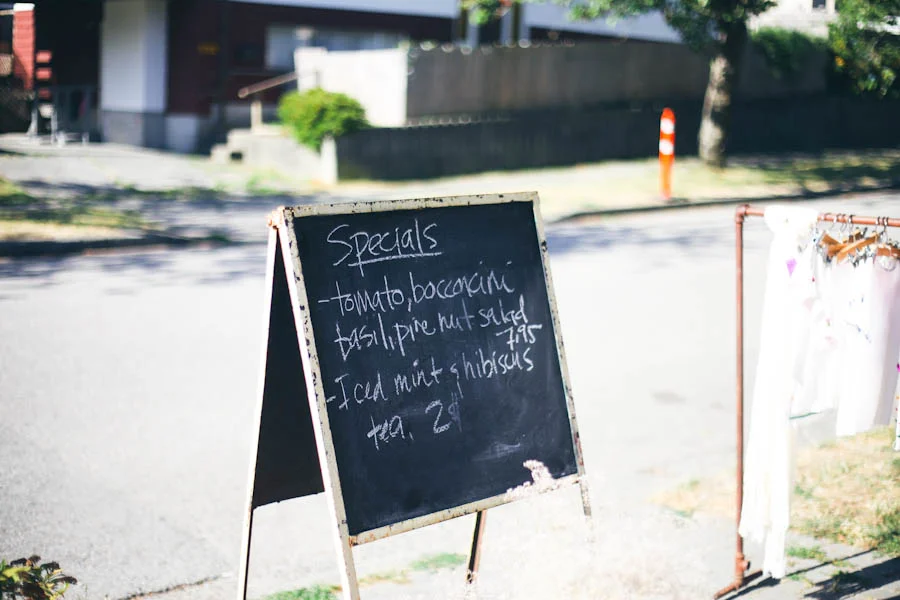 Specials
-tomato, bocconcini
basil, pine nut salad
7.95
-Iced mint & hibiscus
tea, 2$